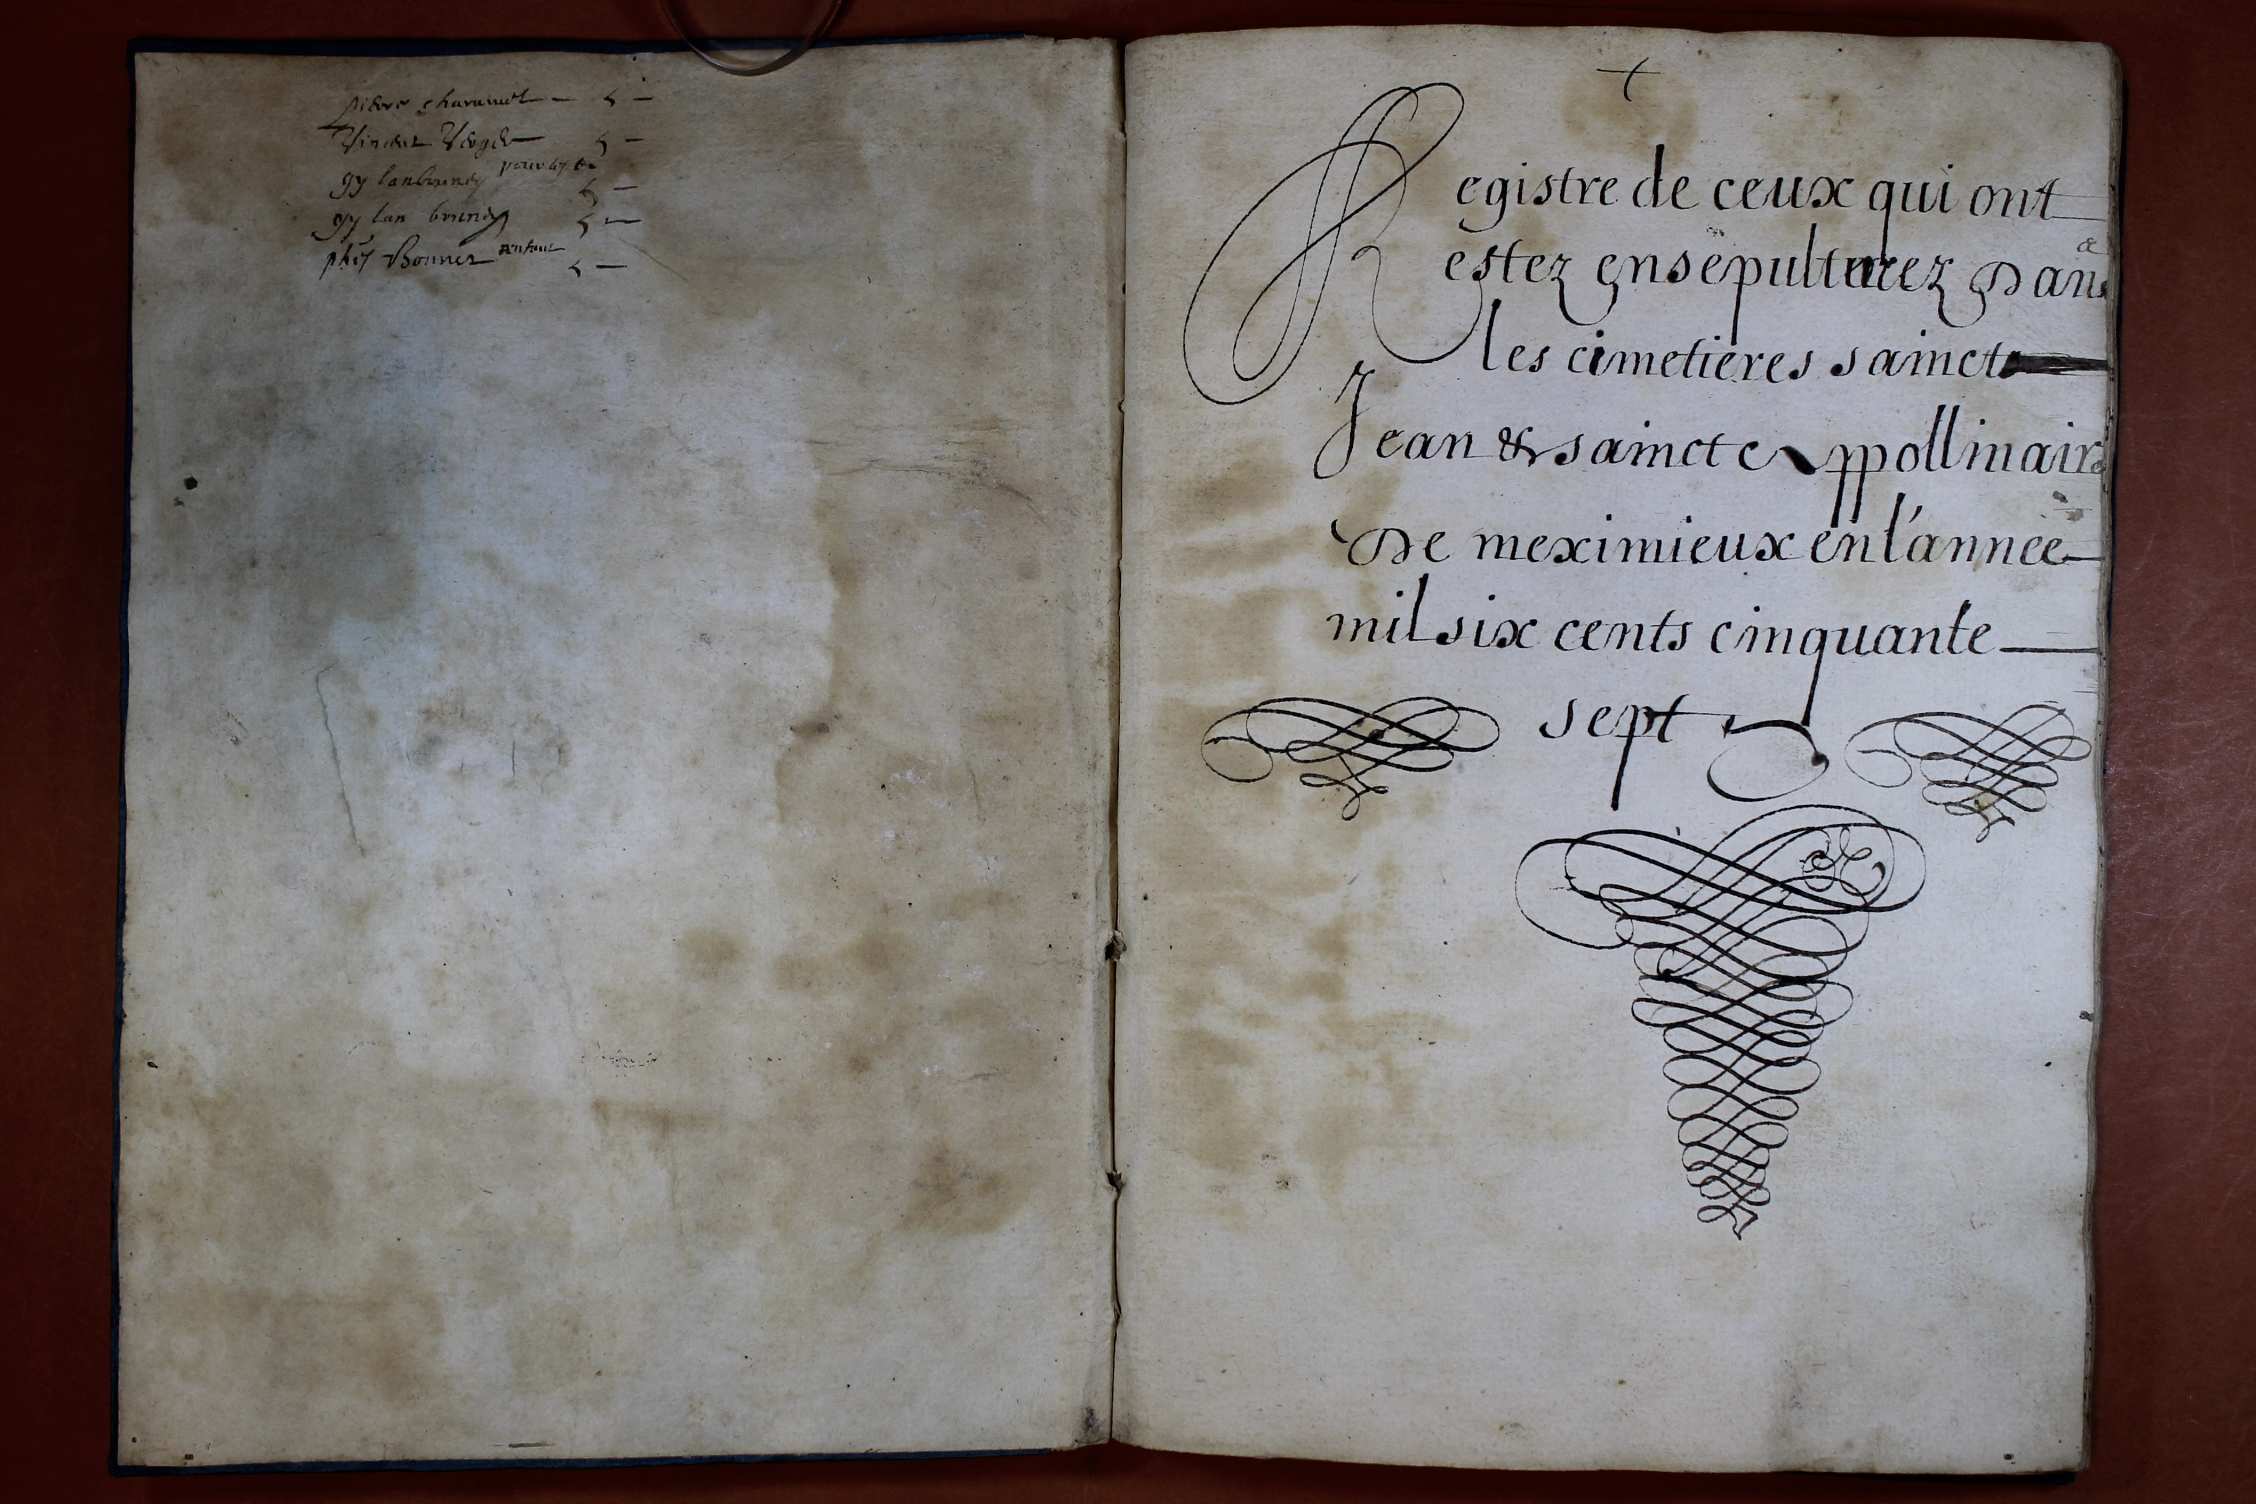 pierre charamel — 5 —
Vincent Verger — 5 —
gy lanbruney 5 —
gy lan bruney 5 —
phẽs Bonnet enfant 5 —
+
Registre de ceux qui ont
estez ensepulturez Dans
les cimetieres sainct
Jean & sainct Appollinaire
De meximieux en l'année
mil six cents cinquante
sept